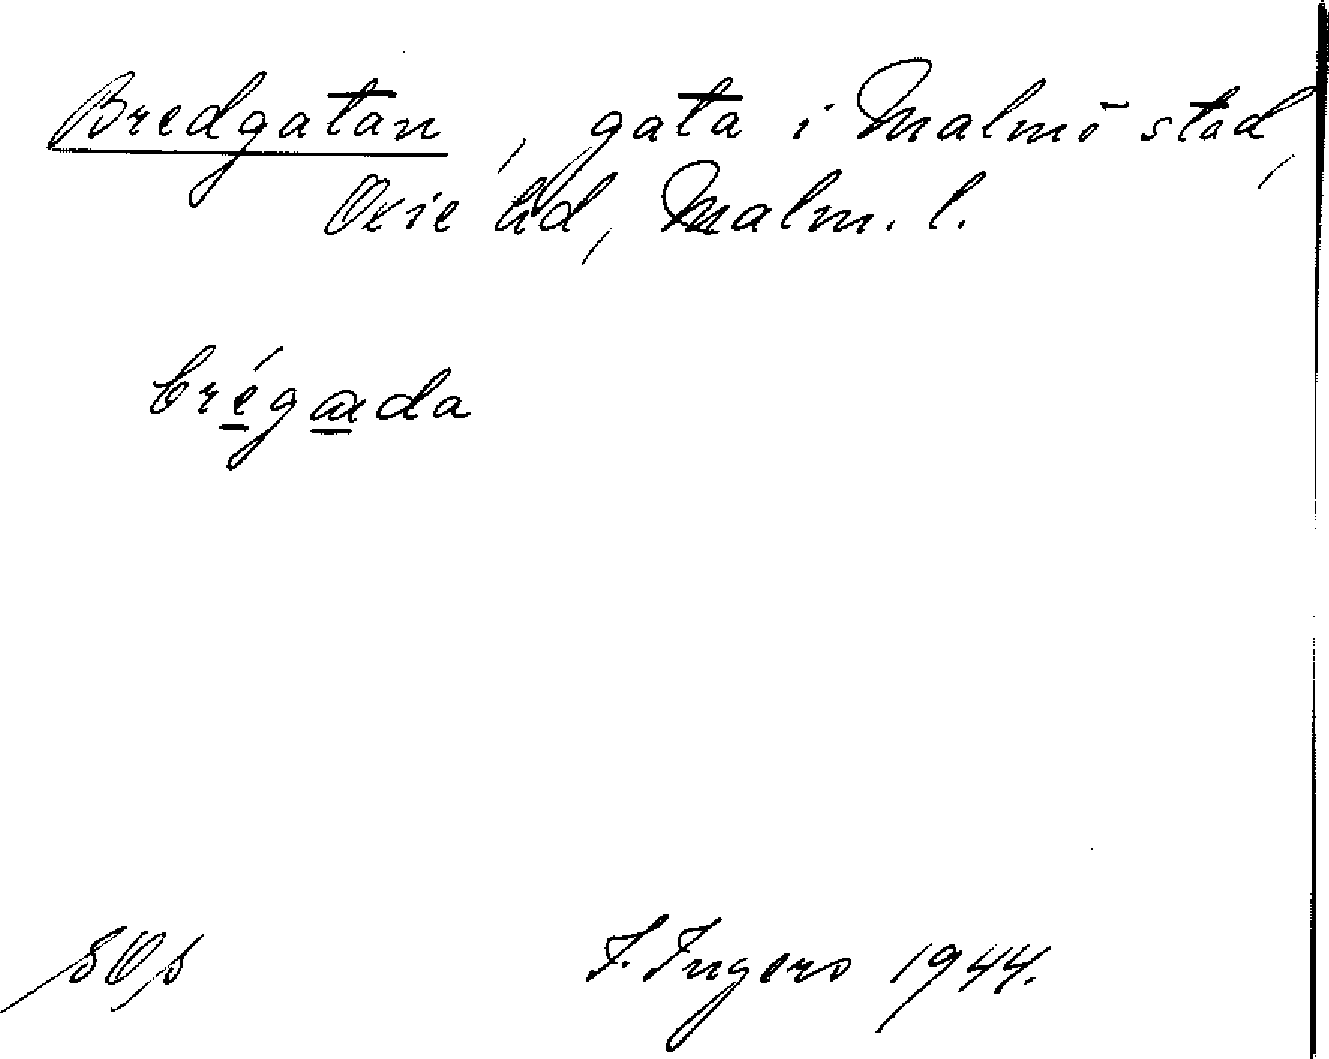 Bredgatan, gata i Malmö stad,
Oxie hd, Malm. l.
brégada
SOs
I. Ingers 1944.